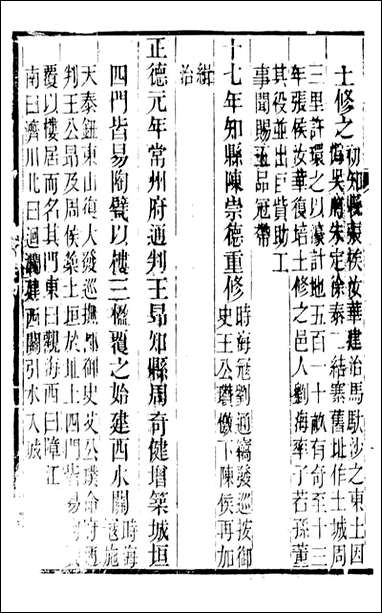 土修之初知縣張侯汝華建治馬馱沙之東土因
僞吳將朱定徐泰二結寨舊址作土城周
三里許環之以濠計地五百一十畝有奇至十
年張侯汝華復培土修之邑人劉海率子若孫董
其役並出巨貲助工
事聞賜五品冠帶
十七年知縣陳崇德重修時海寇劉通竊發巡按御
史王公瓚檄下陳侯再加
緝
治
正德元年常州府通判王昂知縣周奇健增築城垣
四門皆易陶甓以樓三楹覆之始建西水關時海
寇施
天泰鈕東山復大發巡撫都御史艾公璞命府通
判王公昂及周侯築土垣於址上四門皆易
覆以樓居而名其門東曰觀海西曰障江
南曰濟川北曰迴瀾建西關引水入城